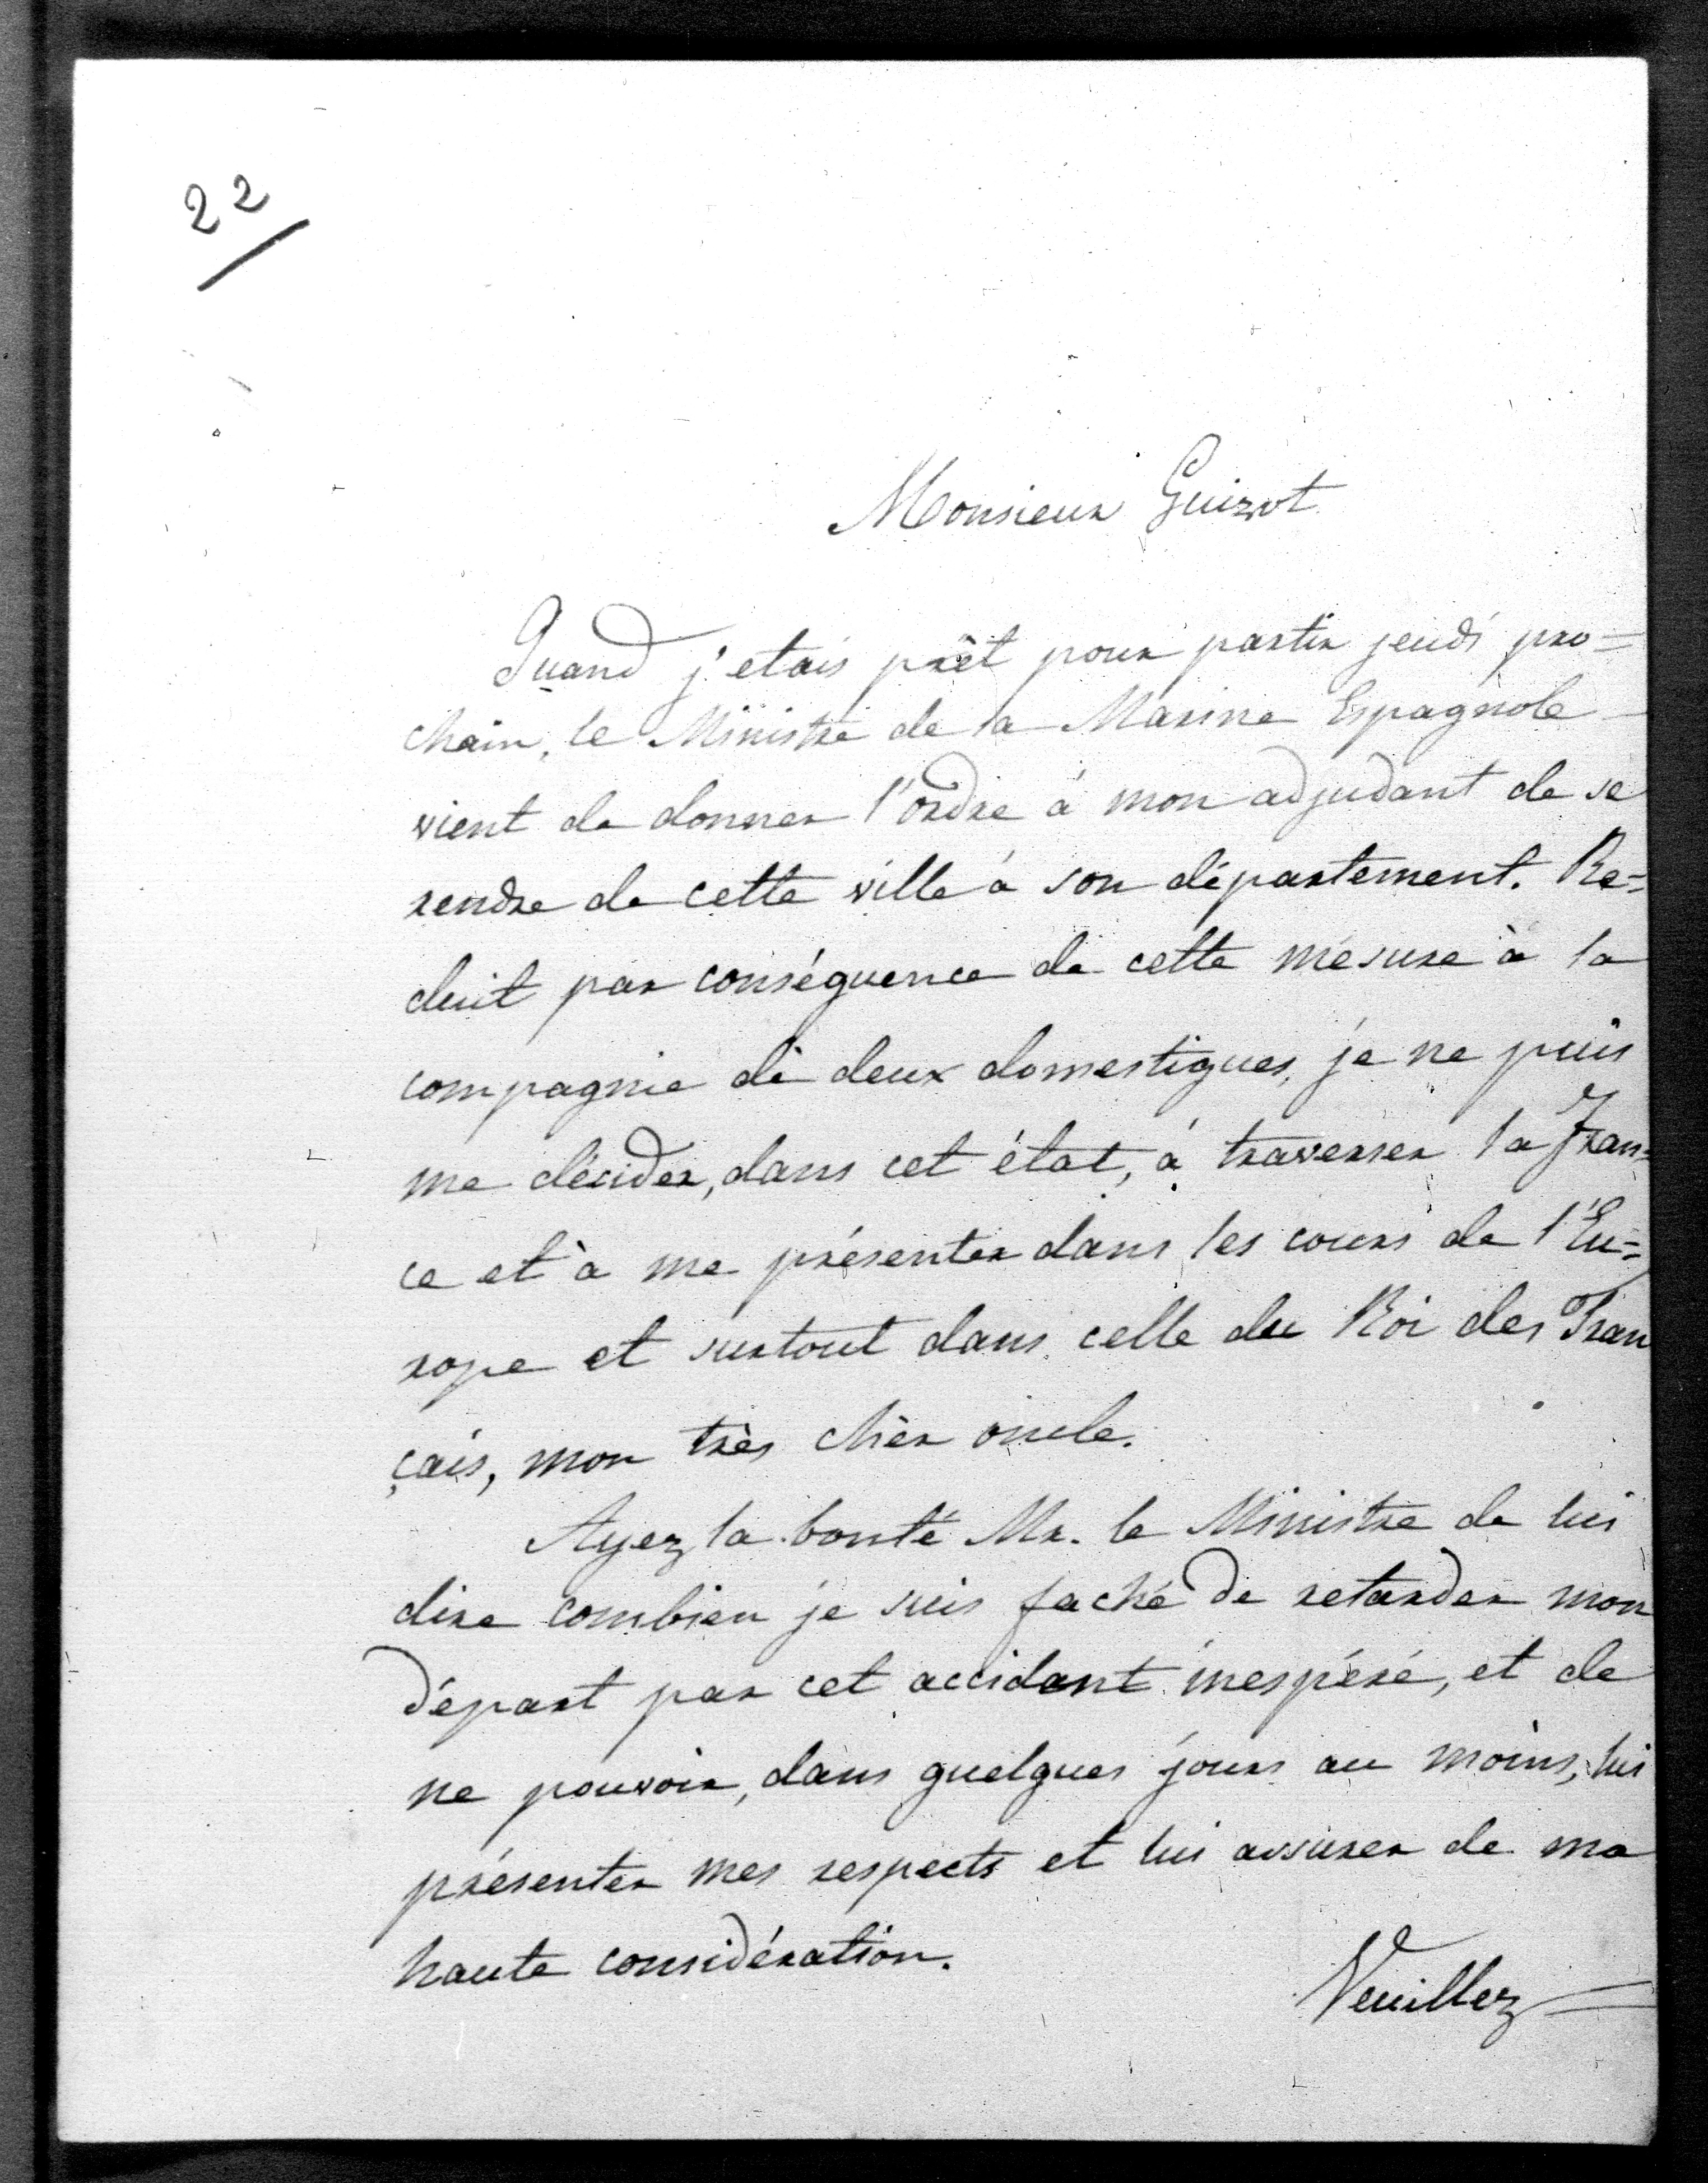 22
Monsieur Guizot
Quand j'etais prêt pour partir jeudi pro=
chain, le Ministre de la Marine Espagnole
vient de donner l'ordre à mon adjudant de se
rendre de cette ville à son département. Re=
duit par conséquence de cette mésure à la
compagnie de deux domestiques, je ne puis
me décider, dans cet état, à traverser la Fran=
ce et à me présenter dans les cours de l'Eu=
rope et surtout dans celle du Roi des Fran
çais, mon très chèr oncle.
Ayez la bonté Mr. le Ministre de lui
dire combien je suis faché de retarder mon
départ par cet accidant inespéré, et de
ne pouvoir, dans quelques jours au moins, lui
présenter mes respects et lui assurer de ma
haute considération.
Veuillez